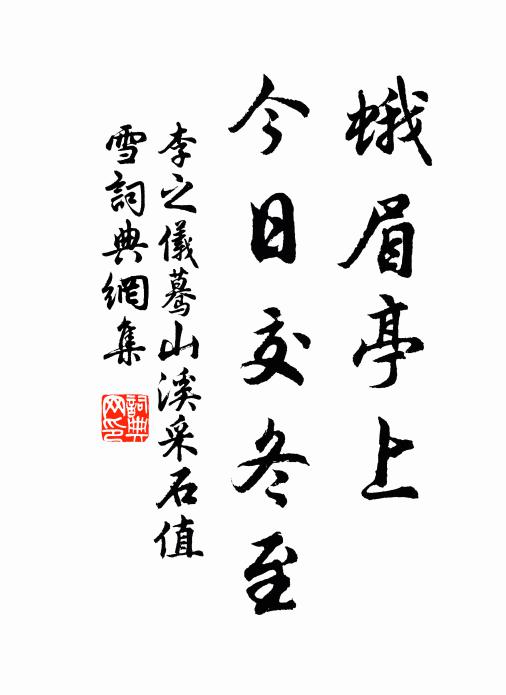 蛾眉亭上
今日交冬至
李之儀驀山溪采石值
雪詞典網集
詞典網印